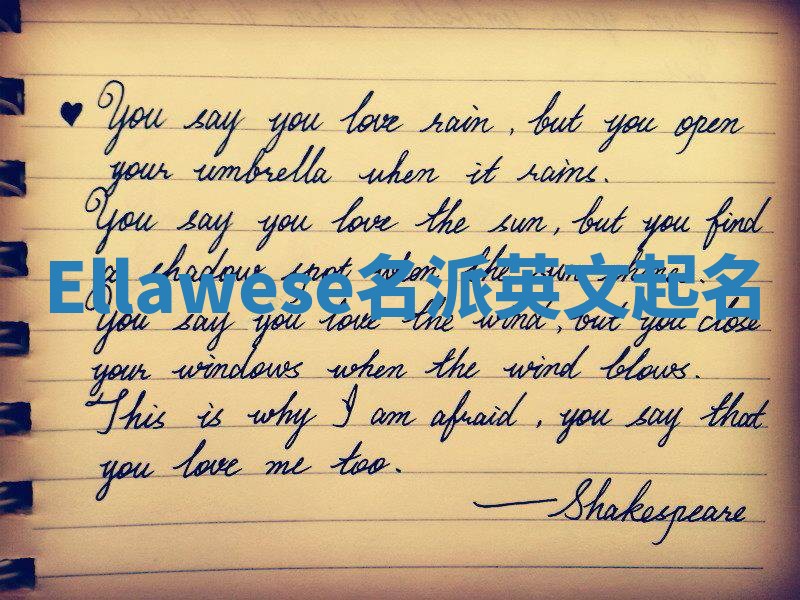 ♥ You say you love rain, but you open
your umbrella when it rains.
You say you love the sun, but you find
a shadow spot when the sun shines.
Ellawese名派英文起名
You say you love the wind, but you close
your windows when the wind blows.
This is why I am afraid, you say that
you love me too.
—Shakespeare